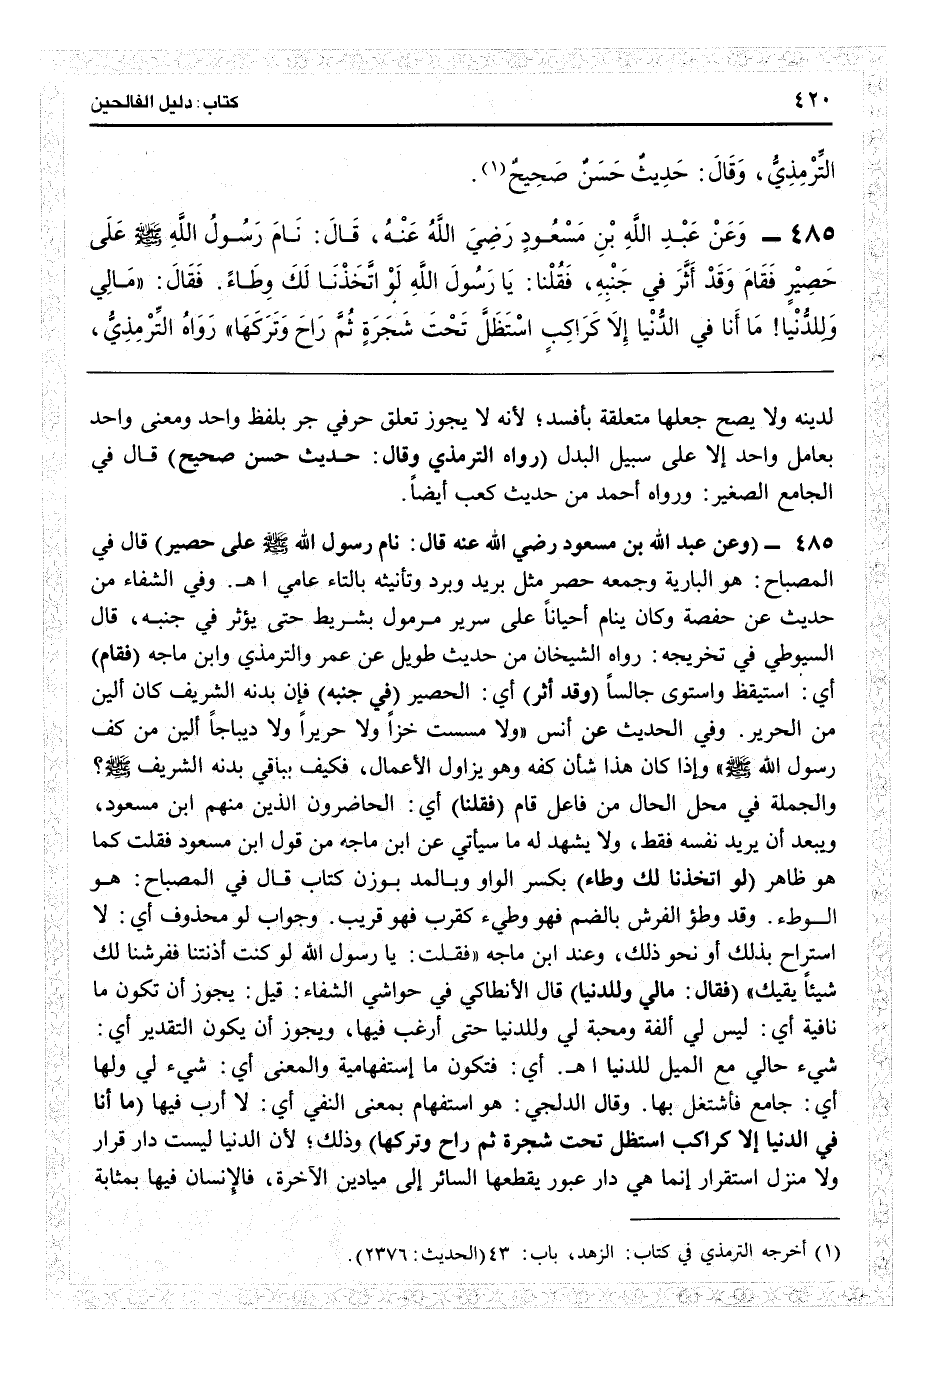 ٤٢٠
كتاب: دليل الفالحين
التِّرْمِذِيُّ، وَقَالَ: حَدِيثٌ حَسَنٌ صَحِيحٌ(١).
٤٨٥ ـ وَعَنْ عَبْدِ اللَّهِ بْنِ مَسْعُودٍ رَضِيَ اللَّهُ عَنْهُ، قَالَ: نَامَ رَسُولُ اللَّهِ ﷺ عَلَى
حَصِيْرٍ فَقَامَ وَقَدْ أَثَّرَ في جَنْبِهِ، فَقُلْنا: يَا رَسُولَ اللَّهِ لَوْ اتَّخَذْنَا لَكَ وِطَاءً. فَقَالَ: «مَالِي
وَلِلدُّنْيا! مَا أَنا في الدُّنْيا إِلَا كَرَاكِبٍ اسْتَظَلَّ تَحْتَ شَجَرَةٍ ثُمَّ رَاحَ وَتَرَكَهَا» رَوَاهُ التِّرْمِذِيُّ،
لدينه ولا يصح جعلها متعلقة بأفسد؛ لأنه لا يجوز تعلق حرفي جر بلفظ واحد ومعنى واحد
بعامل واحد إلا على سبيل البدل (رواه الترمذي وقال: حديث حسن صحيح) قال في
الجامع الصغير: ورواه أحمد من حديث كعب أيضاً.
٤٨٥ ـ (وعن عبد الله بن مسعود رضي الله عنه قال: نام رسول الله ﷺ على حصير) قال في
المصباح: هو البارية وجمعه حصر مثل بريد وبرد وتأنيثه بالتاء عامي اهـ. وفي الشفاء من
حديث عن حفصة وكان ينام أحياناً على سرير مرمول بشريط حتى يؤثر في جنبه، قال
السيوطي في تخريجه: رواه الشيخان من حديث طويل عن عمر والترمذي وابن ماجه (فقام)
أي: استيقظ واستوى جالساً (وقد أثر) أي: الحصير (في جنبه) فإن بدنه الشريف كان ألين
من الحرير. وفي الحديث عن أنس «ولا مسست خزاً ولا حريراً ولا ديباجاً ألين من كف
رسول الله ﷺ» وإذا كان هذا شأن كفه وهو يزاول الأعمال، فكيف بباقي بدنه الشريف ﷺ؟
والجملة في محل الحال من فاعل قام (فقلنا) أي: الحاضرون الذين منهم ابن مسعود،
ويبعد أن يريد نفسه فقط، ولا يشهد له ما سيأتي عن ابن ماجه من قول ابن مسعود فقلت كما
هو ظاهر (لو اتخذنا لك وطاء) بكسر الواو وبالمد بوزن كتاب قال في المصباح: هو
الوطء. وقد وطؤ الفرش بالضم فهو وطيء كقرب فهو قريب. وجواب لو محذوف أي: لا
استراح بذلك أو نحو ذلك، وعند ابن ماجه «فقلت: يا رسول الله لو كنت أذنتنا ففرشنا لك
شيئاً يقيك» (فقال: مالي وللدنيا) قال الأنطاكي في حواشي الشفاء: قيل: يجوز أن تكون ما
نافية أي: ليس لي ألفة ومحبة لي وللدنيا حتى أرغب فيها، ويجوز أن يكون التقدير أي:
شيء حالي مع الميل للدنيا اهـ. أي: فتكون ما إستفهامية والمعنى أي: شيء لي ولها
أي: جامع فأشتغل بها. وقال الدلجي: هو استفهام بمعنى النفي أي: لا أرب فيها (ما أنا
في الدنيا إلا كراكب استظل تحت شجرة ثم راح وتركها) وذلك؛ لأن الدنيا ليست دار قرار
ولا منزل استقرار إنما هي دار عبور يقطعها السائر إلى ميادين الآخرة، فالإنسان فيها بمثابة
(١) أخرجه الترمذي في كتاب: الزهد، باب: ٤٣ (الحديث: ٢٣٧٦).